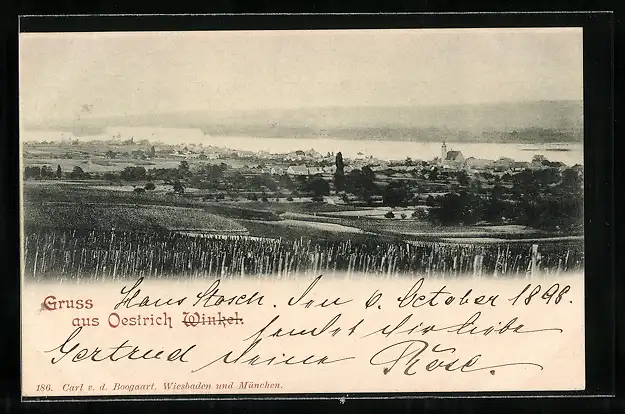 Gruss Haus Stosch. Den 6. October 1898.
aus Oestrich Winkel. sendet die liebe
Gertrud Deine Röse.
186. Carl v. d. Boogaart, Wiesbaden und München.